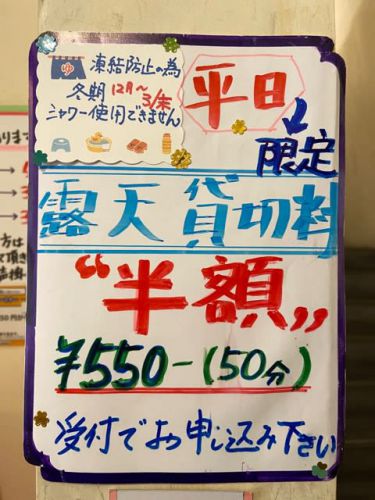 ゆ
凍結防止の為
冬期 12月〜3/末
シャワー使用できません
平日
限定
露天貸切料
“半額”
¥550-(50分)
受付でお申し込み下さい